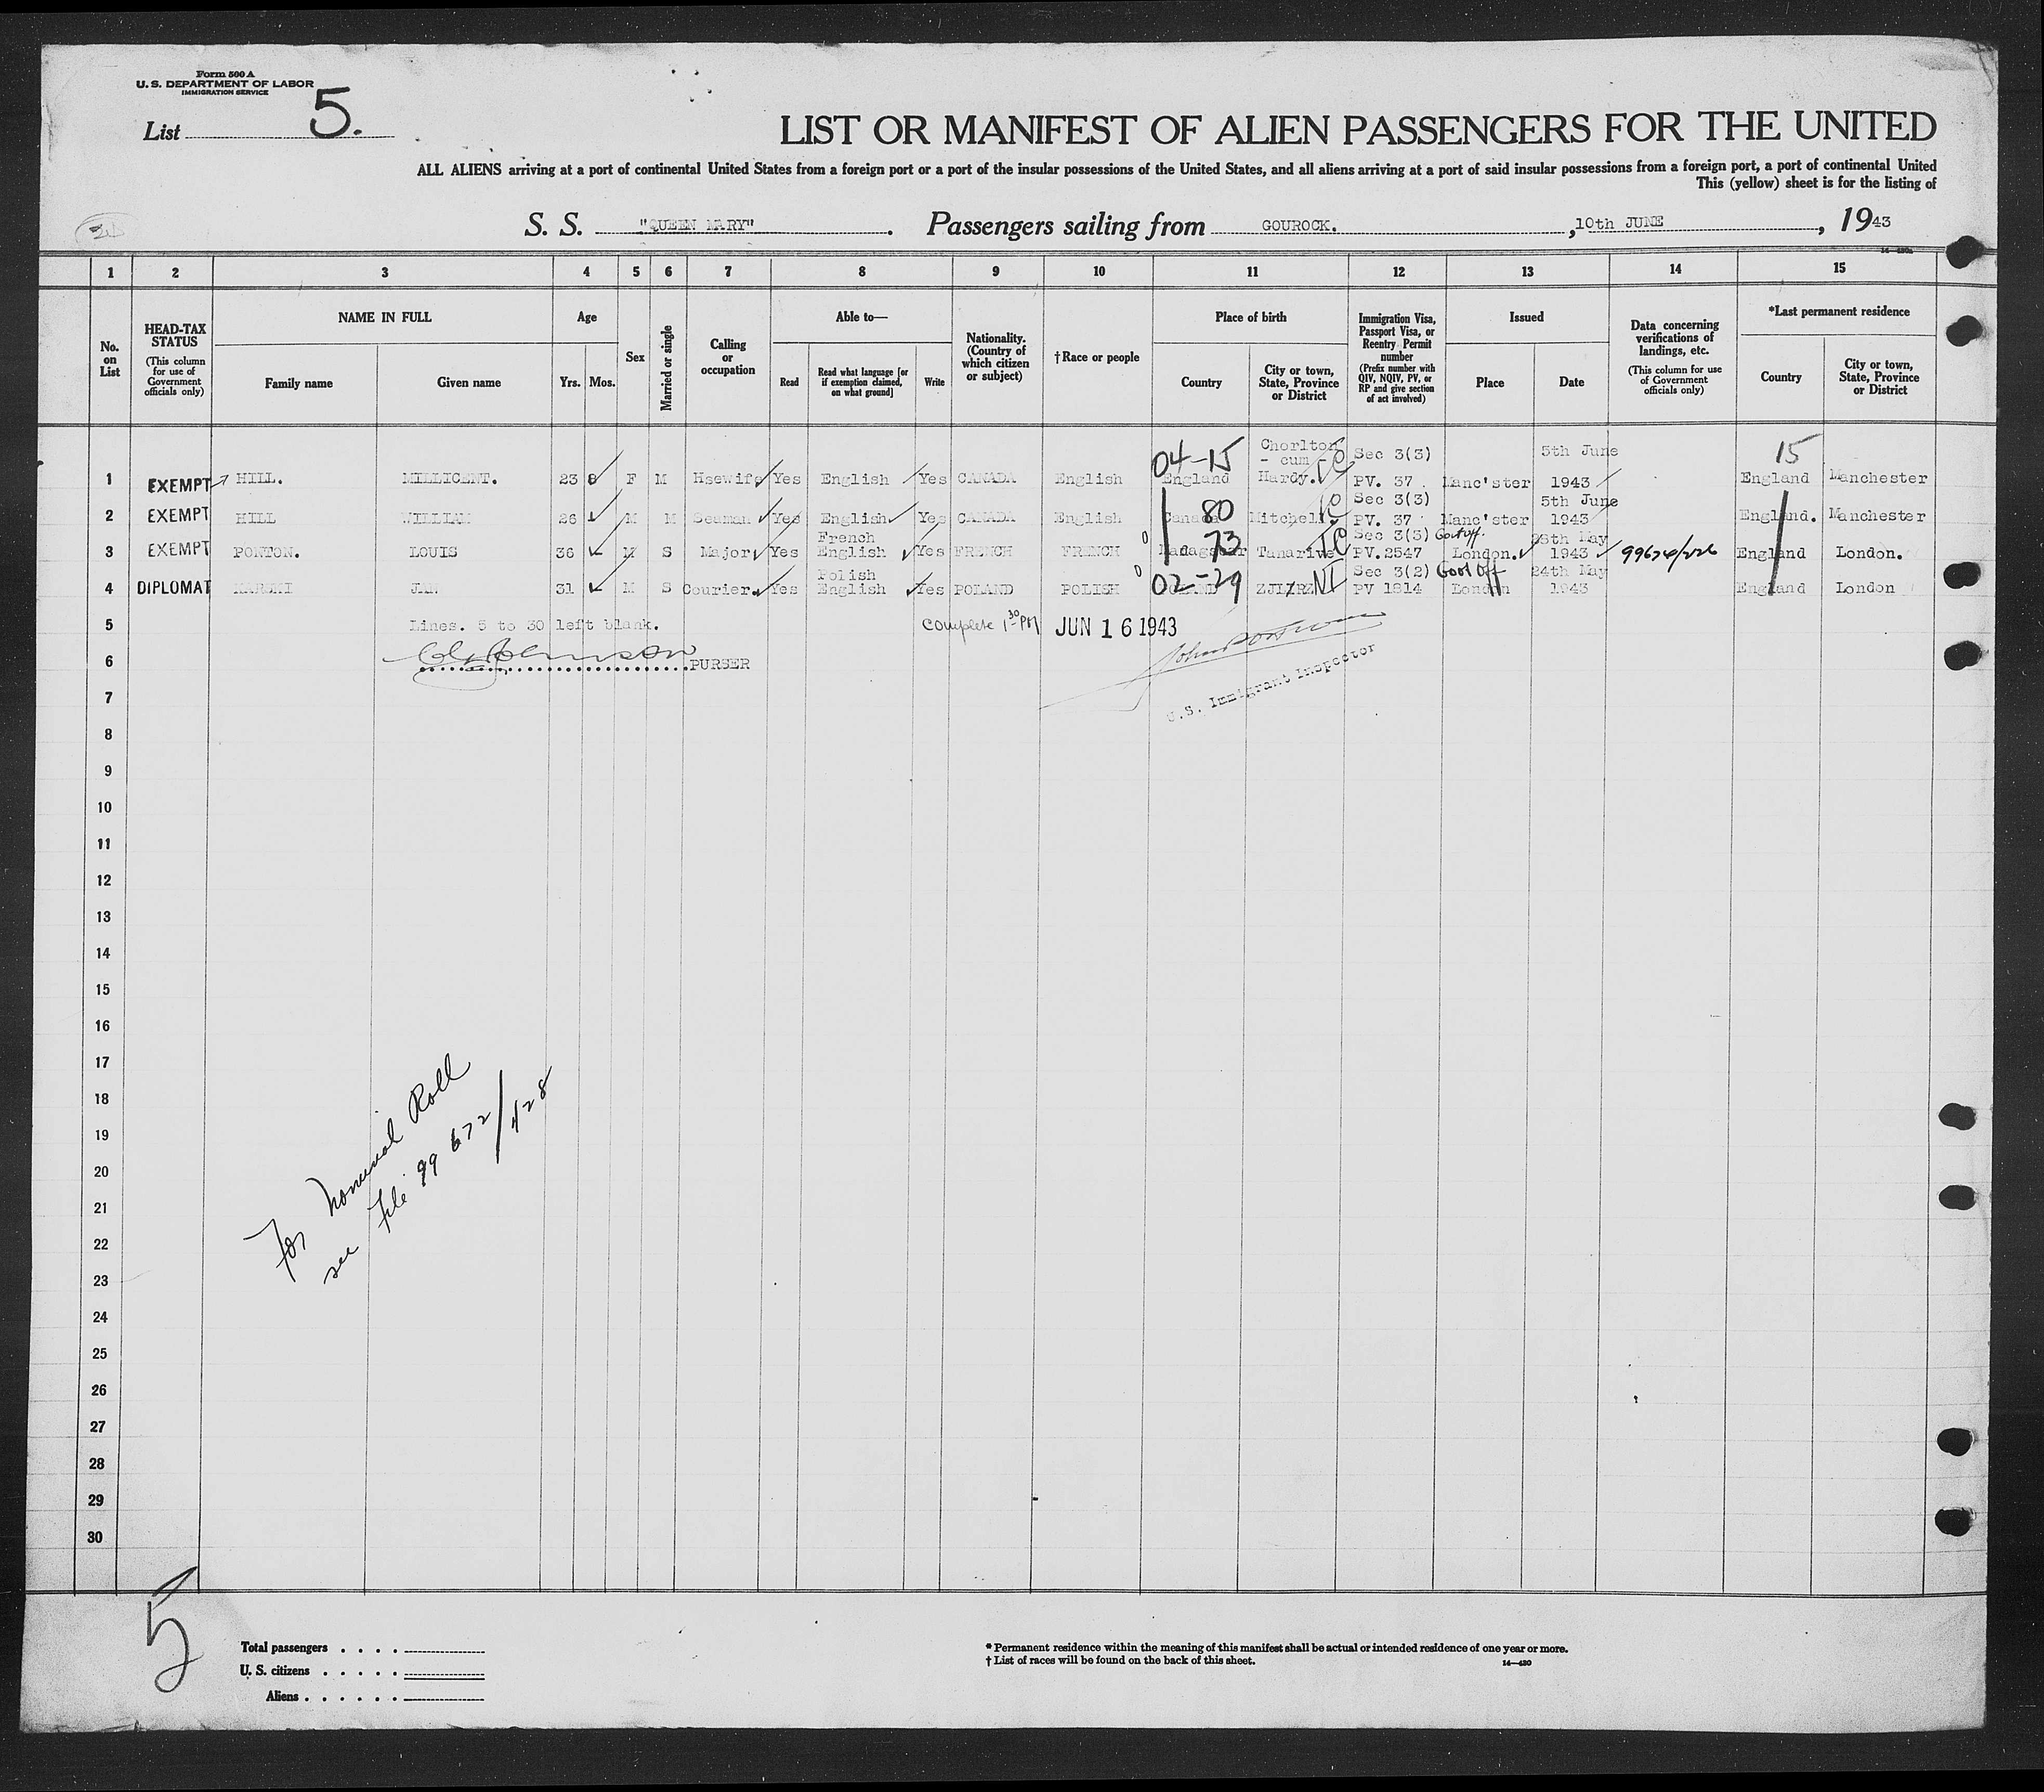 Form 500 A
U. S. DEPARTMENT OF LABOR
IMMIGRATION SERVICE
List 5.
LIST OR MANIFEST OF ALIEN PASSENGERS FOR THE UNITED
ALL ALIENS arriving at a port of continental United States from a foreign port or a port of the insular possessions of the United States, and all aliens arriving at a port of said insular possessions from a foreign port, a port of continental United
This (yellow) sheet is for the listing of
S. S. "QUEEN MARY". Passengers sailing from GOUROCK., 10th JUNE, 1943
1 2 3 4 5 6 7 8 9 10 11 12 13 14 15
No. on List
HEAD-TAX STATUS (This column for use of Government officials only)
NAME IN FULL
Family name
Given name
Age
Yrs. Mos.
Sex
Married or single
Calling or occupation
Able to—
Read
Read what language [or if exemption claimed, on what ground]
Write
Nationality. (Country of which citizen or subject)
†Race or people
Place of birth
Country
City or town, State, Province or District
Immigration Visa, Passport Visa, or Reentry Permit number (Prefix number with QIV, NQIV, PV, or RP and give section of act involved)
Issued
Place
Date
Data concerning verifications of landings, etc. (This column for use of Government officials only)
*Last permanent residence
Country
City or town, State, Province or District
04-15 Chorlton - cum - Sec 3(3) 5th June 15
1 EXEMPT HILL. MILLICENT. 23 8 F M Hsewife Yes English Yes CANADA English England Hardy. PV. 37 Manc'ster 1943 England Manchester
80 Sec 3(3) 5th June
2 EXEMPT HILL WILLIAM 26 M M Seaman Yes English Yes CANADA English Canada Mitchell. PV. 37 Manc'ster 1943 England. Manchester
French 73 Sec 3(3) 25th May
3 EXEMPT PONTON. LOUIS 36 M S Major Yes English Yes FRENCH FRENCH Madagascar Tanarive PV.2547 London. 1943 England London.
Polish 02-29 Sec 3(2) 24th May
4 DIPLOMAT KARSKI JAN 31 M S Courier. Yes English Yes POLAND POLISH POLAND PV 1814 London 1943 England London
5 Lines. 5 to 30 left blank. Complete 1 30 PM JUN 16 1943
6 PURSER
U.S. Immigrant Inspector
7
8
9
10
11
12
13
14
15
16
17
18
19
20
21
22
23
24
25
26
27
28
29
30
For Nominal Roll
see File 99 672/428
5
Total passengers
U. S. citizens
Aliens
* Permanent residence within the meaning of this manifest shall be actual or intended residence of one year or more.
† List of races will be found on the back of this sheet.
14—430